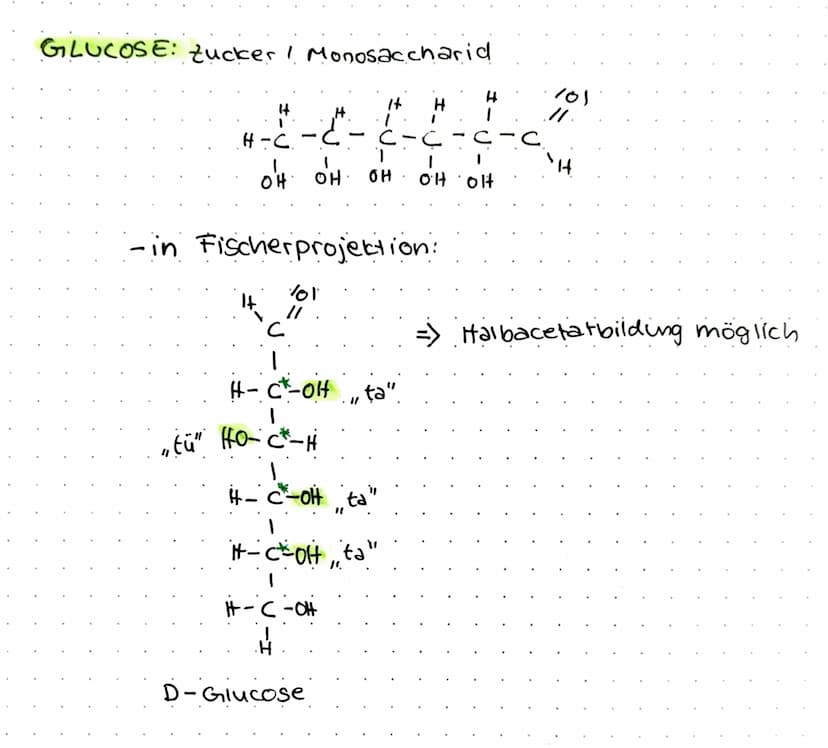 GLUCOSE: Zucker / Monosaccharid
H H H H H IOI
H-C-C-C-C-C-C
OH OH OH OH OH H
- in Fischerprojektion:
H IOI
C
=> Halbacetalbildung möglich
H-C*-OH „ta"
„tü" HO-C*-H
H-C*-OH „ta"
H-C*-OH „ta"
H-C-OH
H
D-Glucose